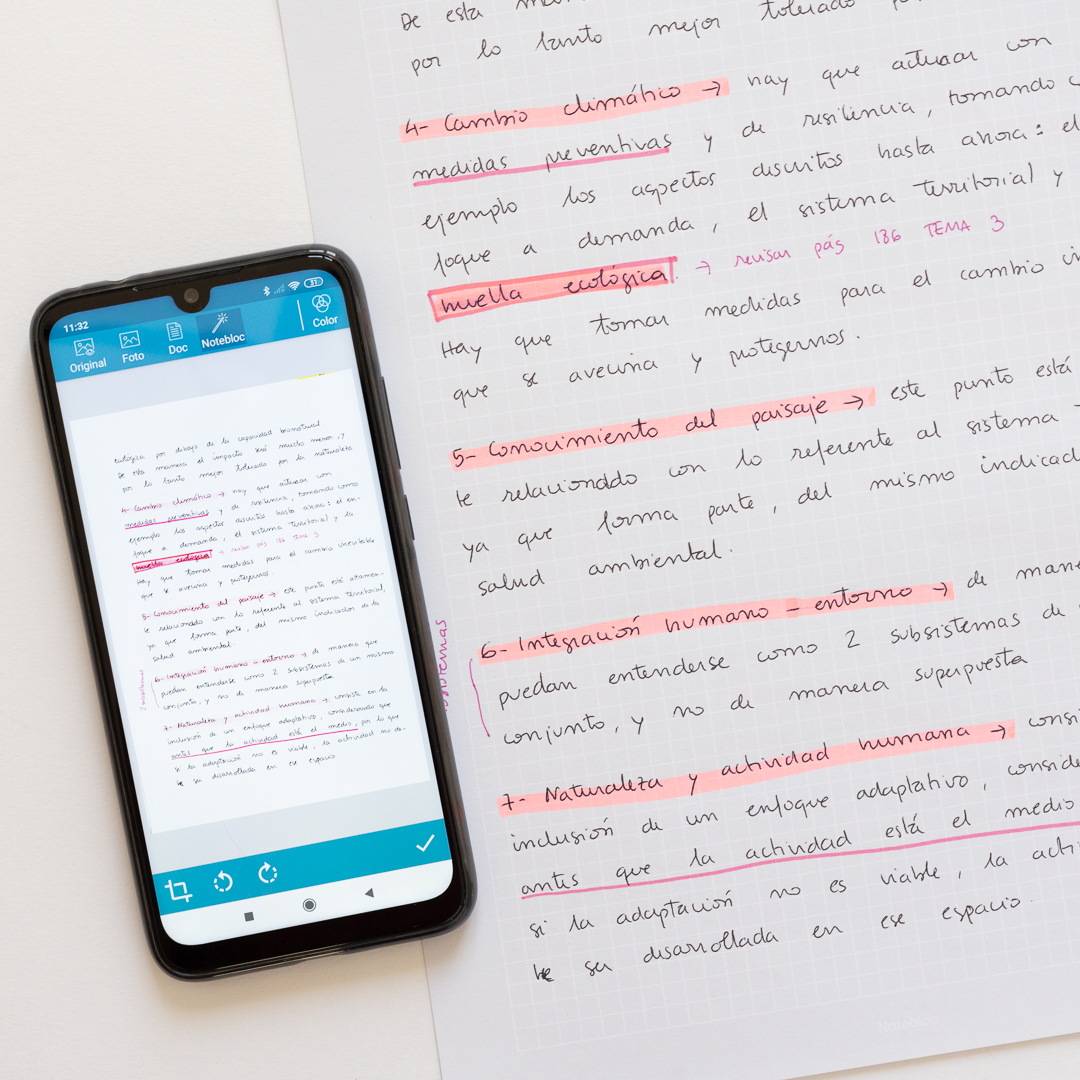 11:32
31
Original
Foto
Doc
Notebloc
Color
ecológica por debajo de la capacidad
De esta manera el impacto será mucho menor, y
por lo tanto mejor tolerado por la naturaleza
4- Cambio climático → hay que actuar con
medidas preventivas y de resiliencia, tomando como
ejemplo los aspectos descritos hasta ahora: el en-
foque a demanda, el sistema territorial y la
huella ecológica → revisar pág 186 TEMA 3
Hay que tomar medidas para el cambio inevitable
que se avecina y protegernos.
5- Conocimiento del paisaje → este punto está altamen-
te relacionado con lo referente al sistema territorial,
ya que forma parte, del mismo indicador de la
salud ambiental.
6- Integración humano - entorno → de manera que
puedan entenderse como 2 subsistemas de un mismo
conjunto, y no de manera superpuesta
7- Naturaleza y actividad humana → consiste en la
inclusión de un enfoque adaptativo, considerando que
antes que la actividad está el medio, por lo que
si la adaptación no es viable, la actividad no de-
be ser desarrollada en ese espacio
De esta
por lo tanto mejor tolerado
4- Cambio climático → hay que actuar con
medidas preventivas y de resiliencia, tomando
ejemplo los aspectos descritos hasta ahora: el
foque a demanda, el sistema territorial y
huella ecológica. → revisar pág 186 TEMA 3
Hay que tomar medidas para el cambio
que se avecina y protegernos.
5- Conocimiento del paisaje → este punto está
te relacionado con lo referente al sistema
ya que forma parte, del mismo indicad
salud ambiental.
6- Integración humano - entorno → de mane
puedan entenderse como 2 subsistemas de
conjunto, y no de manera superpuesta
7- Naturaleza y actividad humana → consi
inclusión de un enfoque adaptativo, conside
antes que la actividad está el medio
si la adaptación no es viable, la acti
be ser desarrollada en ese espacio.
Notebloc